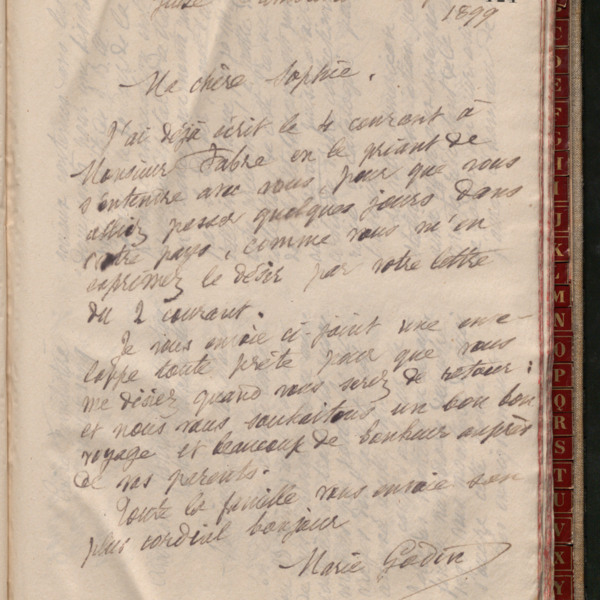 1899
Ma chère Sophie.
J'ai déjà écrit le 4 courant à
Monsieur Fabre en le priant de
s'entendre avec vous, pour que vous
alliez passer quelques jours dans
votre pays, comme vous m'en
exprimez le désir par votre lettre
du 2 courant.
Je vous envoie ci-joint une enve-
loppe toute prête pour que vous
me disiez quand vous serez de retour;
et nous vous souhaitons un bon bon
voyage et beaucoup de bonheur auprès
de vos parents.
Toute la famille vous envoie son
plus cordial bonjour
Marie Godin
E
D
E
F
G
H
I
J
K
L
M
N
O
P
Q
R
S
T
U
V
X
Y